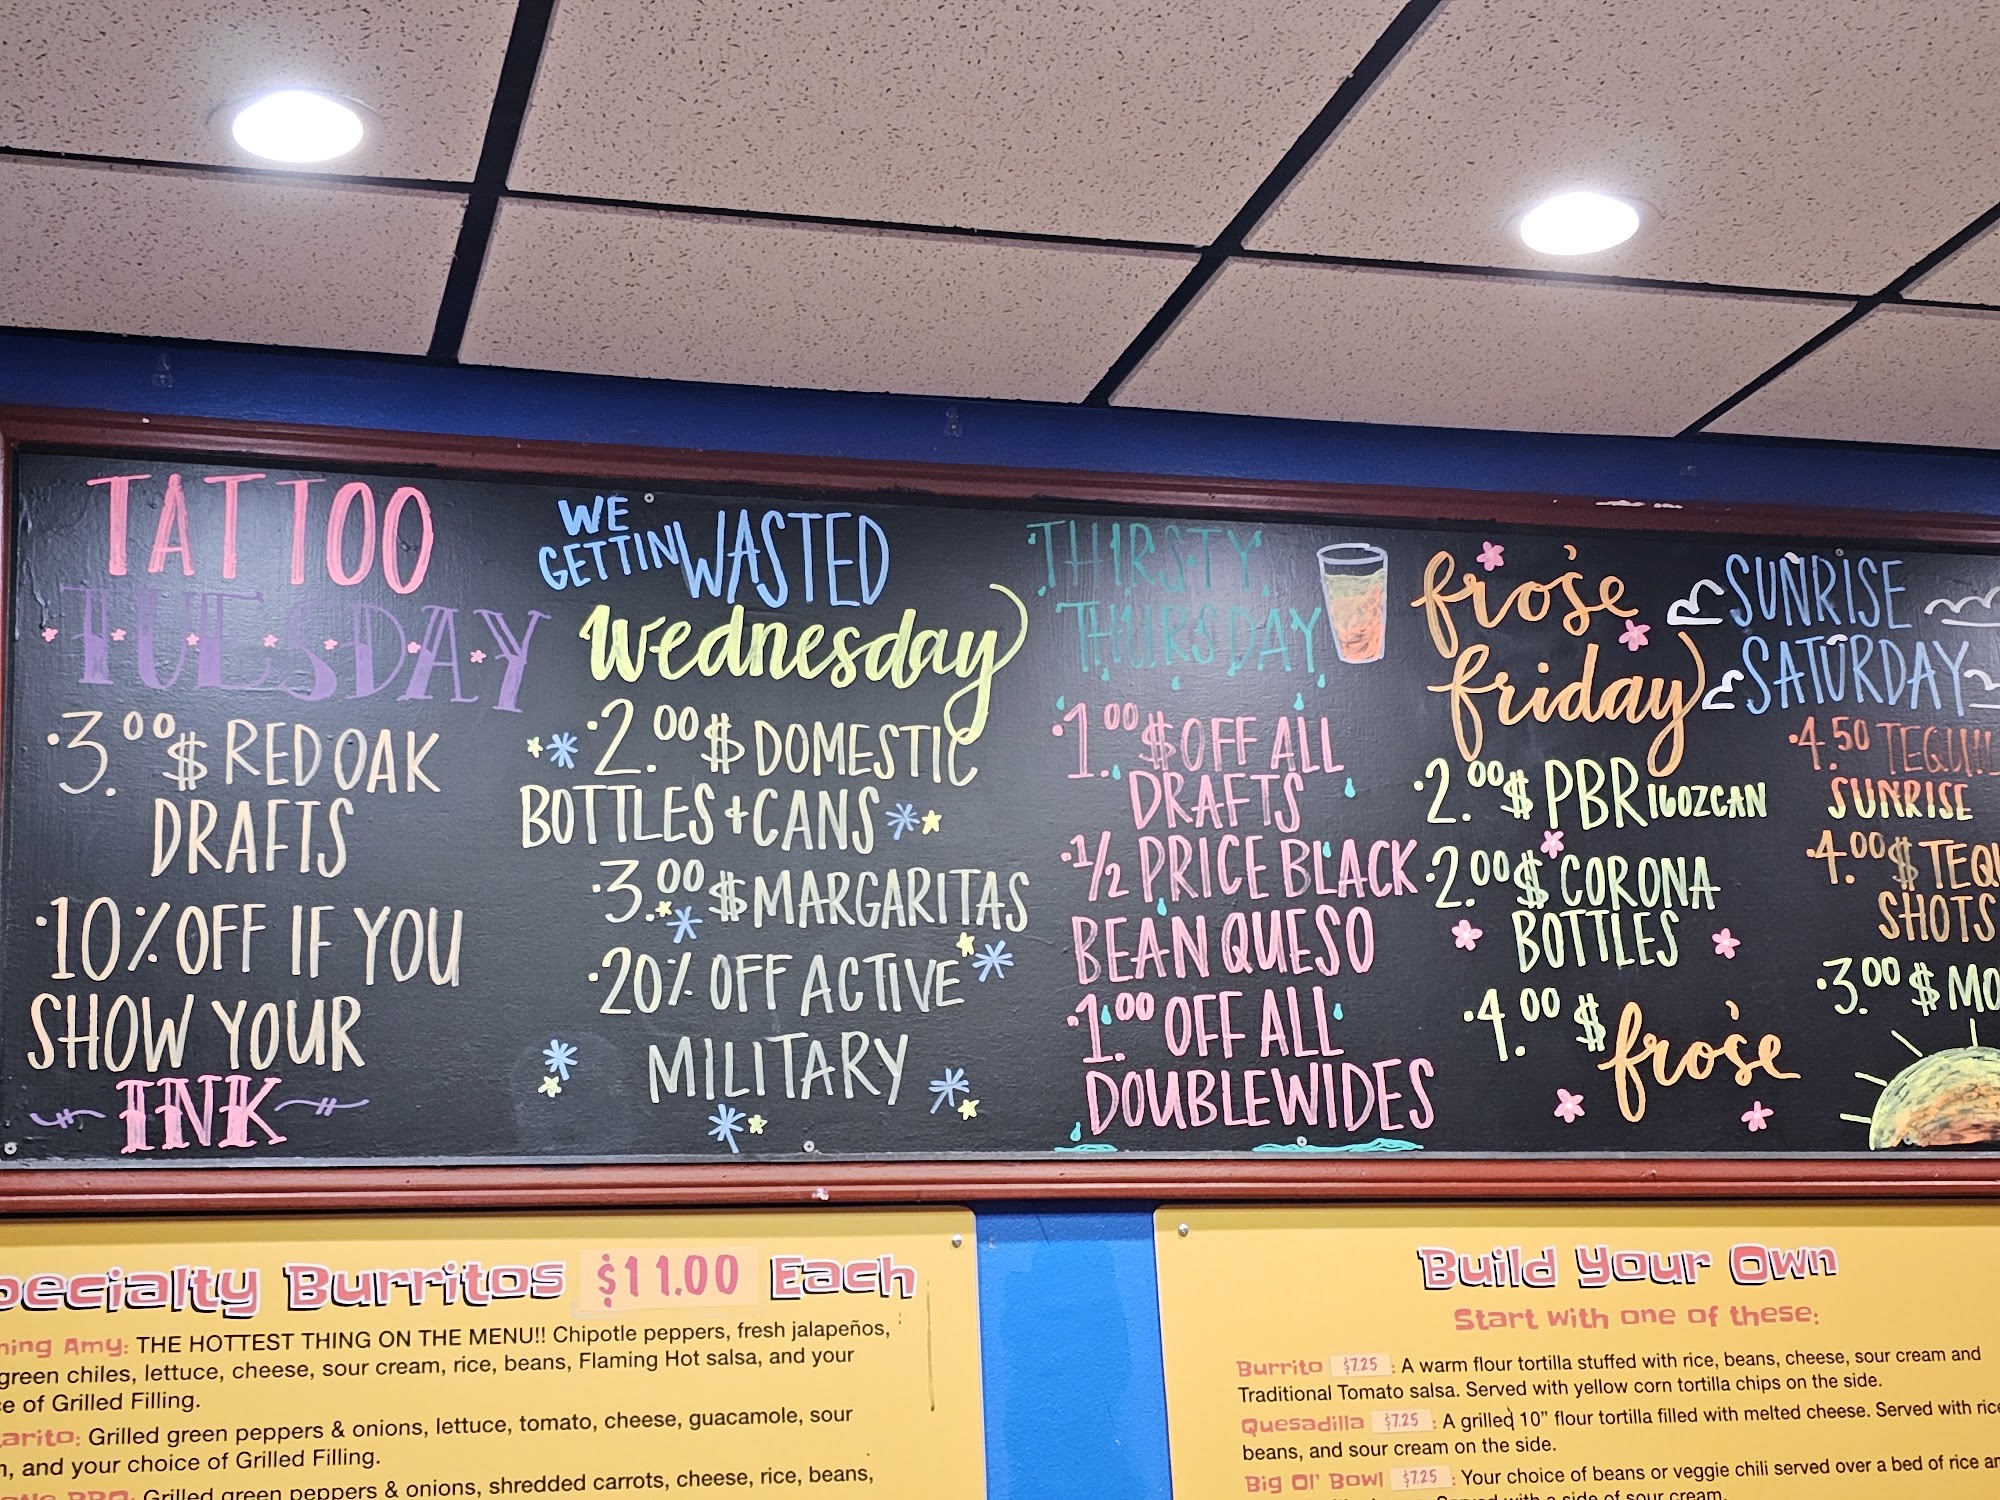 TATTOO
TUESDAY
·3.00$ RED OAK
DRAFTS
·10% OFF IF YOU
SHOW YOUR
INK
WE
GETTIN WASTED
Wednesday
·2.00$ DOMESTIC
BOTTLES + CANS
·3.00$ MARGARITAS
·20% OFF ACTIVE
MILITARY
THIRSTY
THURSDAY
·1.00$ OFF ALL
DRAFTS
·1/2 PRICE BLACK
BEAN QUESO
·1.00 OFF ALL
DOUBLEWIDES
frosé
friday
·2.00$ PBR 16OZ CAN
·2.00$ CORONA
BOTTLES
·4.00$ frosé
SUNRISE
SATURDAY
·4.50
SUNRISE
·4.00$
SHOTS
·3.00$
pecialty Burritos $11.00 Each
ning Amy: THE HOTTEST THING ON THE MENU!! Chipotle peppers, fresh jalapeños,
green chiles, lettuce, cheese, sour cream, rice, beans, Flaming Hot salsa, and your
ce of Grilled Filling.
arito: Grilled green peppers & onions, lettuce, tomato, cheese, guacamole, sour
, and your choice of Grilled Filling.
BBQ: Grilled green peppers & onions, shredded carrots, cheese, rice, beans,
Build Your Own
Start with one of these:
Burrito $7.25 : A warm flour tortilla stuffed with rice, beans, cheese, sour cream and
Traditional Tomato salsa. Served with yellow corn tortilla chips on the side.
Quesadilla $7.25 : A grilled 10" flour tortilla filled with melted cheese. Served with rice
beans, and sour cream on the side.
Big Ol' Bowl $7.25 : Your choice of beans or veggie chili served over a bed of rice
Served with a side of sour cream.